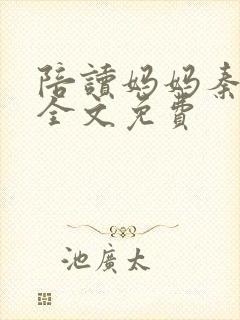 陪讀媽媽秦
全文免費
池廣太